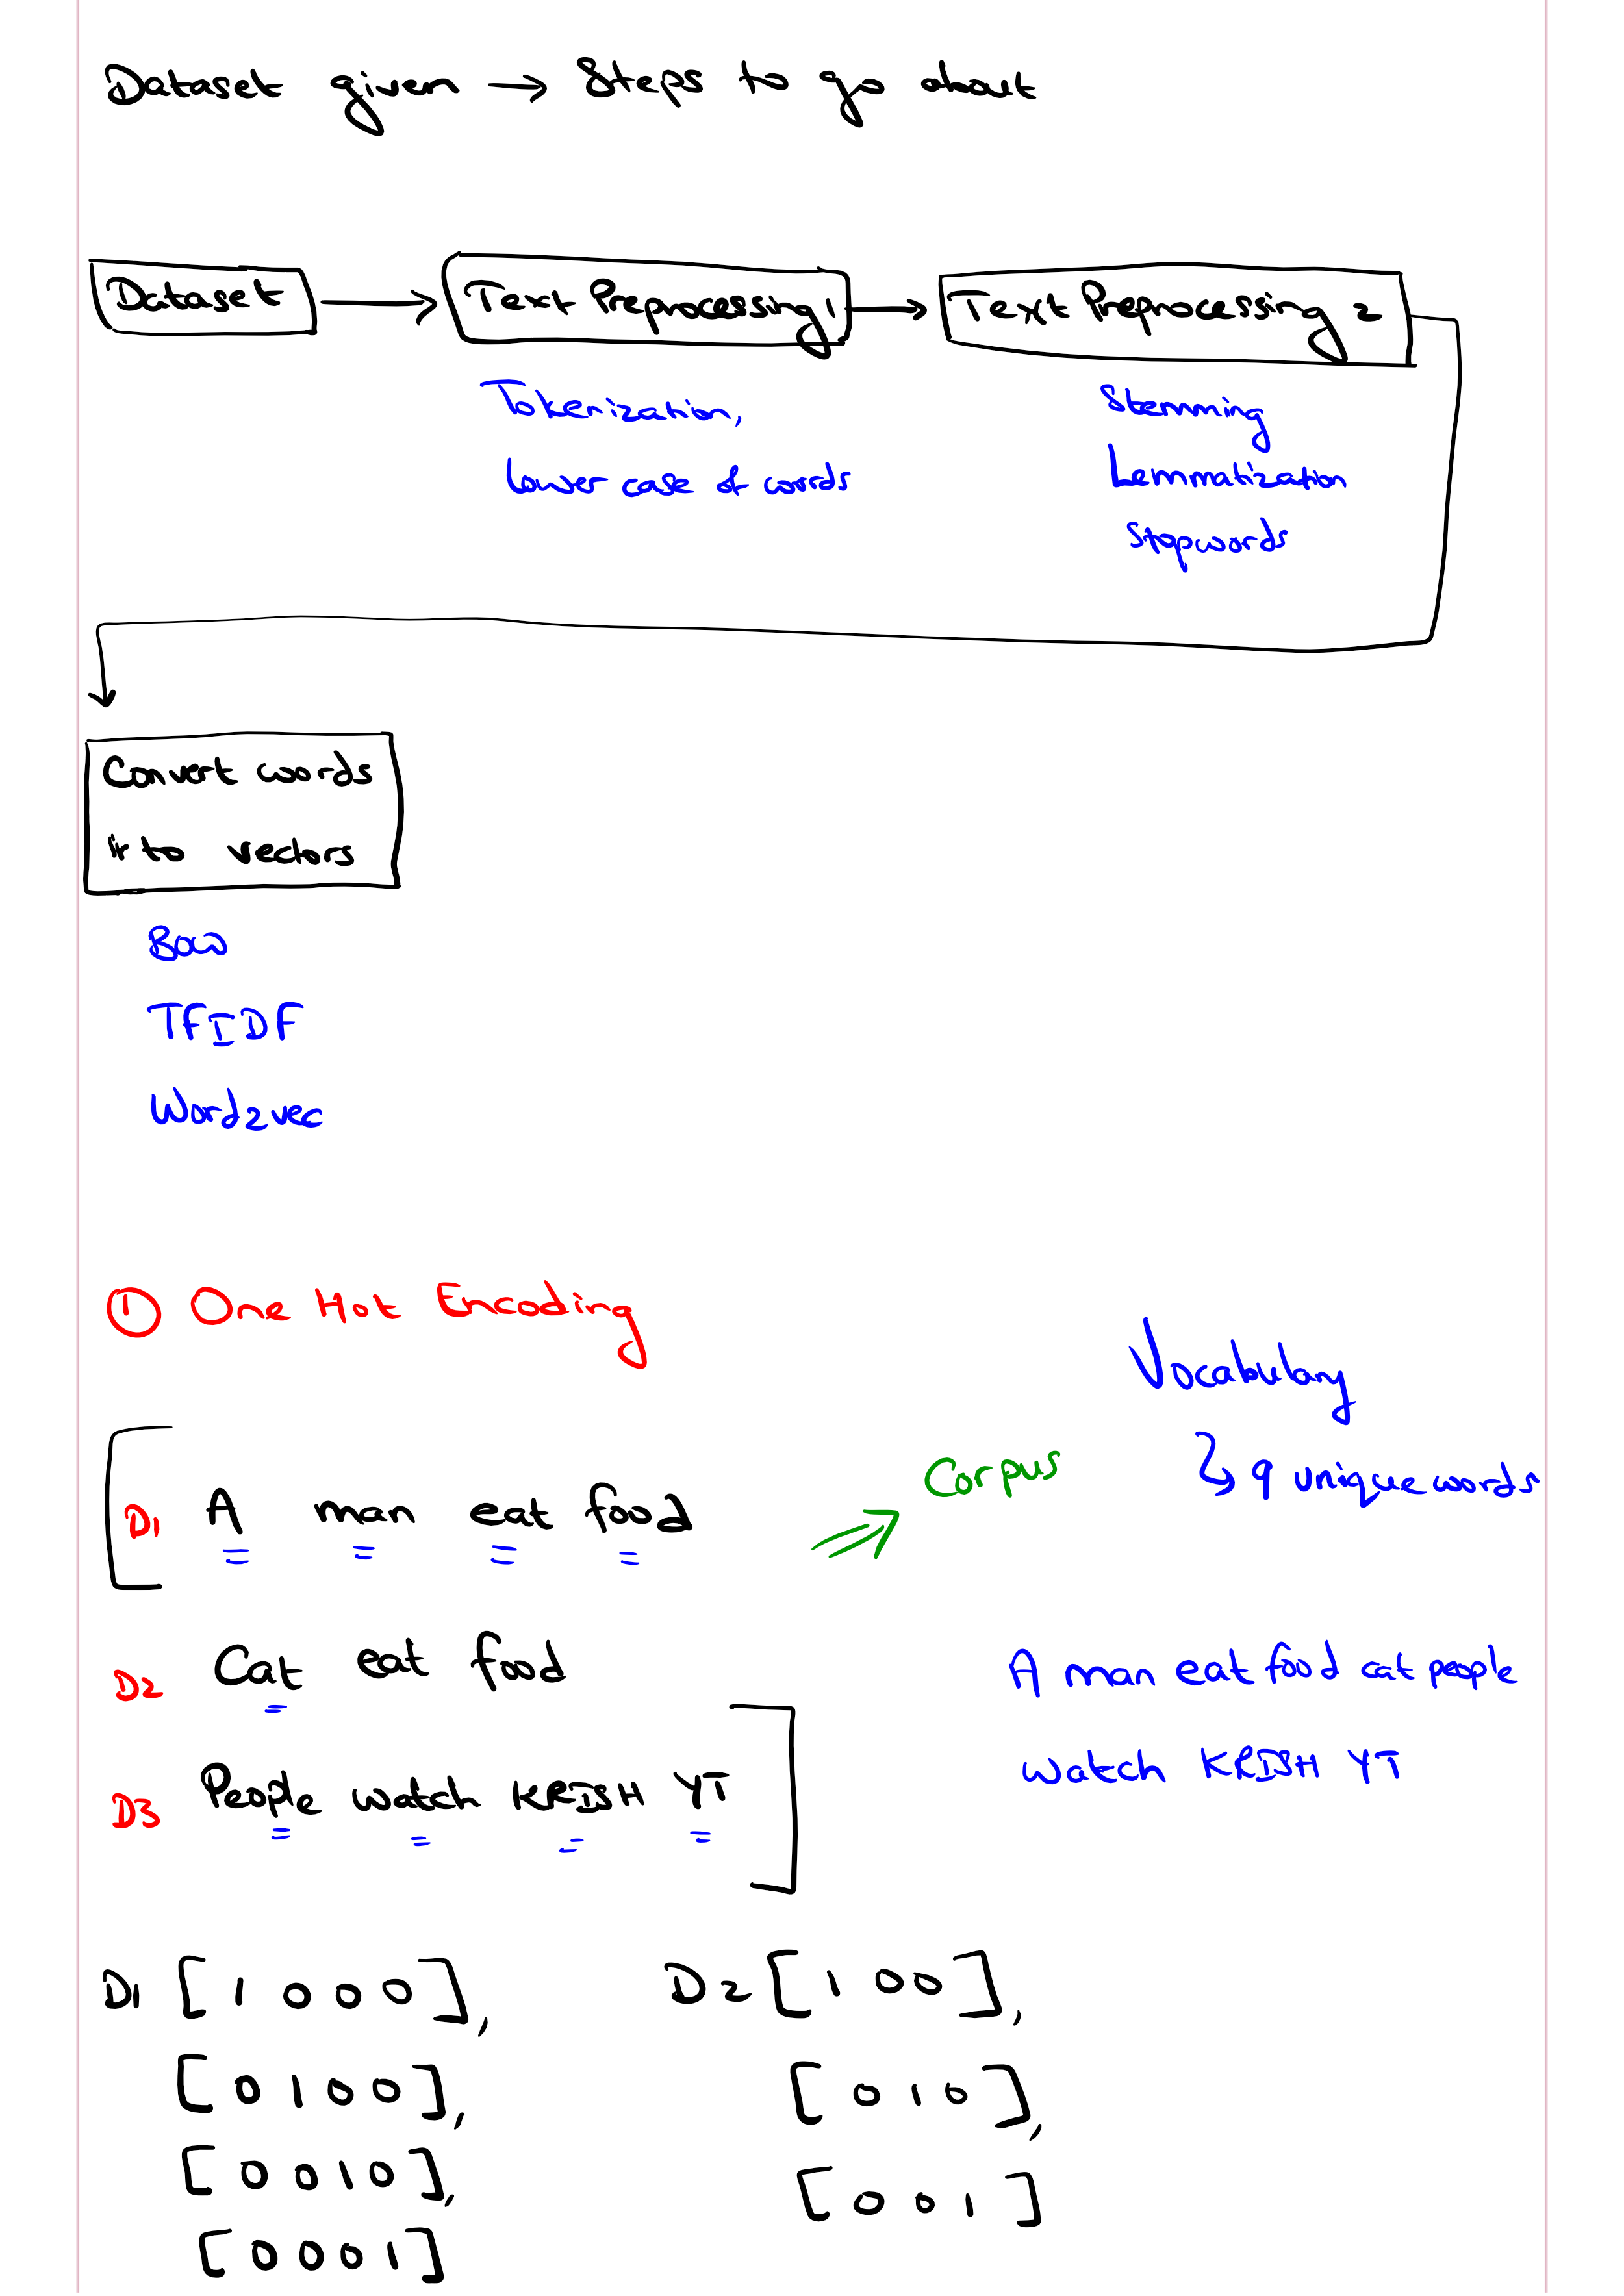 Dataset given → Steps to go about
Dataset → Text Preprocessing 1 → Text Preprocessing 2
Tokenization,
lower case of words
Stemming
Lemmatization
Stopwords
Convert words
into vectors
BOW
TFIDF
Word2vec
① One Hot Encoding
Vocabulary
9 unique words
Corpus
D1 A man eat food
D2 Cat eat food
D3 People watch KRISH YT
A man eat food cat people
watch KRISH YT
D1 [1 0 0 0],
[0 1 0 0],
[0 0 1 0],
[0 0 0 1]
D2 [1 0 0],
[0 1 0],
[0 0 1]